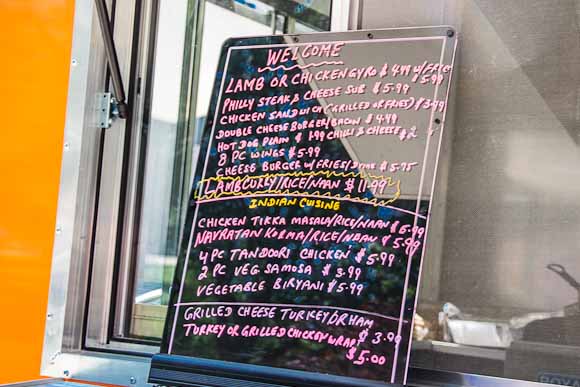 WELCOME
LAMB OR CHICKEN GYRO $4.99 W/FRIES $5.99
PHILLY STEAK & CHEESE SUB $5.99
CHICKEN SANDWICH (GRILLED OR FRIED) $3.99
DOUBLE CHEESE BURGER/BACON $4.99
HOT DOG PLAIN $1.99 CHILLI & CHEESE $2
8 PC WINGS $5.99
CHEESE BURGER W/FRIES/ $5.75
LAMB CURRY/RICE/NAAN $11.99
INDIAN CUISINE
CHICKEN TIKKA MASALA/RICE/NAAN $6.99
NAVRATAN KORMA/RICE/NAAN $5.99
4 PC TANDOORI CHICKEN $5.99
2 PC VEG SAMOSA $3.99
VEGETABLE BIRYANI $5.99
GRILLED CHEESE TURKEY OR HAM $3.99
TURKEY OR GRILLED CHICKEN WRAP $5.00